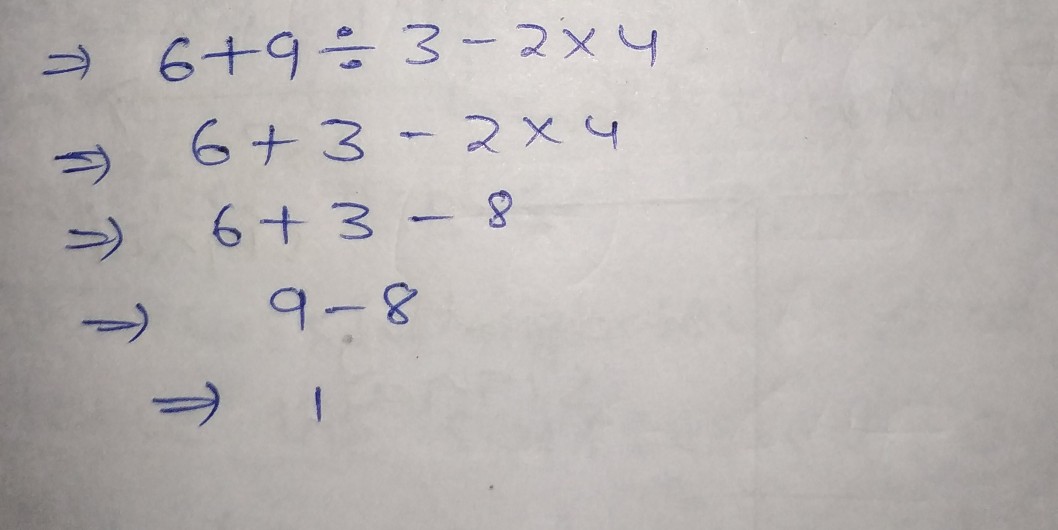 ⇒ 6+9÷3-2×4
⇒ 6+3-2×4
⇒ 6+3-8
⇒ 9-8
⇒ 1